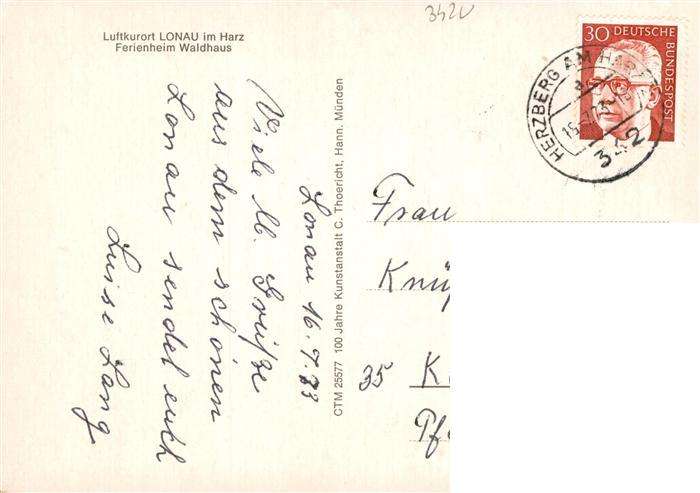 3420
Luftkurort LONAU im Harz
Ferienheim Waldhaus
30 DEUTSCHE BUNDESPOST
HERZBERG AM HARZ
342
Lonau 16.7.73
Viele lb. Grüße
aus dem schönen
Lonau sendet euch
Luise Lang
CTM 25577 100 Jahre Kunstanstalt C. Thoericht, Hann. Münden
Frau
Knüp
35 K
Pf